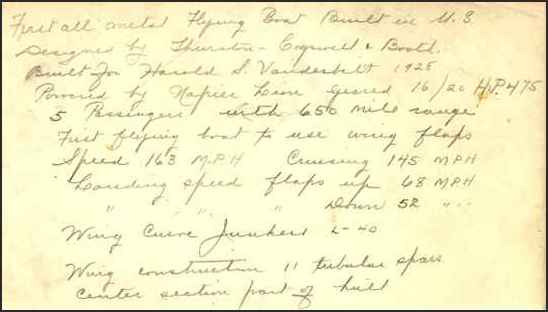 First all metal Flying Boat Built in U.S
Designed by Thurston - Cogswell & Booth.
Built For Harold S. Vanderbilt 1928
Powered by Napier Lion Geared 16/20 H.P. 475
5 Passengers with 650 mile range
First flying boat to use wing flaps
Speed 163 M.P.H Cruising 145 MPH
Landing speed flaps up 68 MPH
" " " Down 52 " "
Wing Curve Junkers L-40
Wing construction 11 tubular spars
Center section part of hull